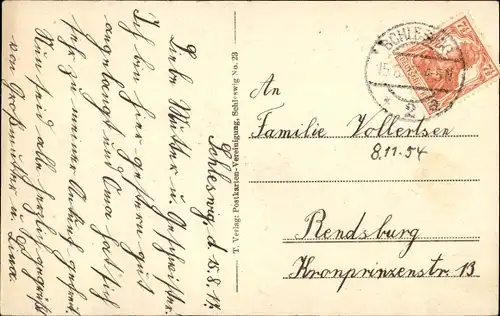 Schleswig, d. 15.8.17.
Liebe Mutter u. Geschwister.
Ich bin hier gestern gut
angelangt und Oma hat sich
sehr zu meiner Ankunft gefreut.
Nun seid alle herzlich gegrüßt
von Großmutter u.
T. Verlag: Postkarten-Vereinigung, Schleswig No. 23
SCHLESWIG
15.8.
2
7½
An
Familie Vollertsen
8.11.54
Rendsburg
Kronprinzenstr. 13